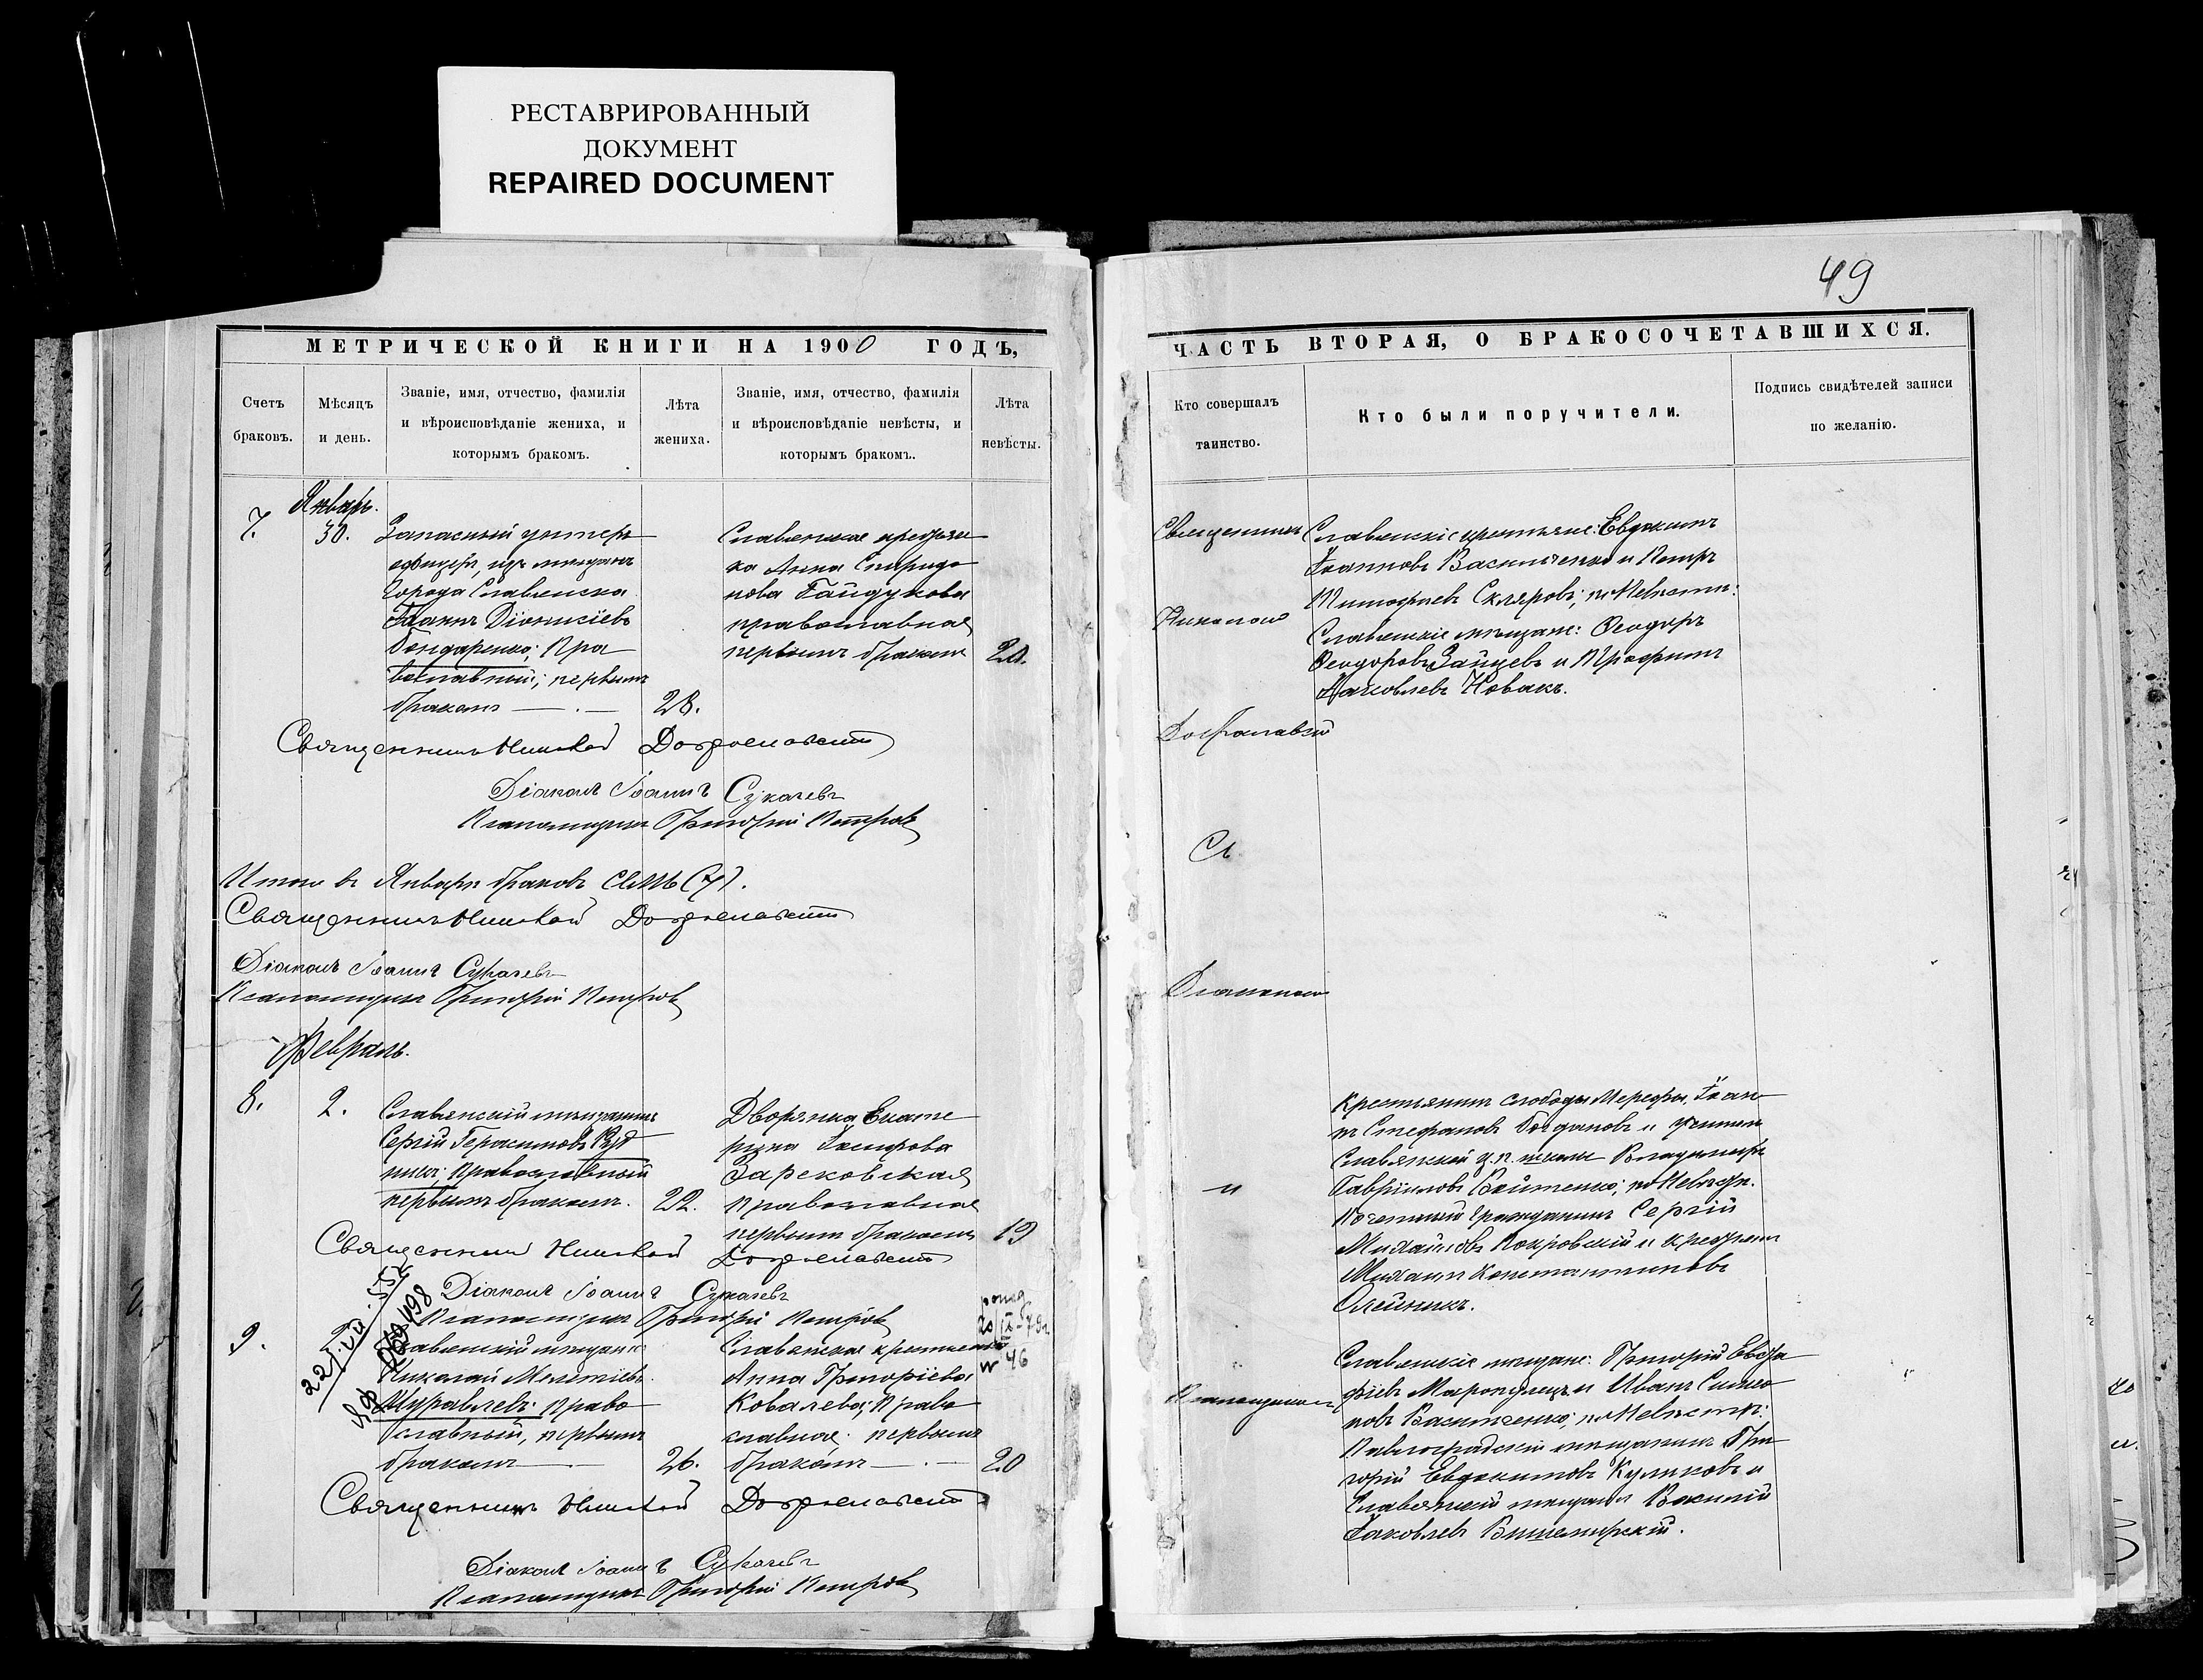 РЕСТАВРИРОВАННЫЙ
ДОКУМЕНТ
REPAIRED DOCUMENT
МЕТРИЧЕСКОЙ КНИГИ НА 1900 ГОДЪ,
Счетъ браковъ.
Мѣсяцъ и день.
Званіе, имя, отчество, фамилія
и вѣроисповѣданіе жениха, и
которымъ бракомъ.
Лѣта жениха.
Званіе, имя, отчество, фамилія
и вѣроисповѣданіе невѣсты, и
которымъ бракомъ.
Лѣта невѣсты.
Январь.
7.
30.
Запасный унтеръ
офицеръ, изъ мещанъ
города Славянска
Іоаннъ Діонисіевъ
Бондаренко; Пра
вославный; первымъ
бракомъ
28.
Славянская крестьян
ка Анна Спиридо
нова Гайдукова
православная
первымъ бракомъ
20.
Священникъ Николай Доброславскій
Діаконъ Іоаннъ Сукачевъ
Псаломщикъ Григорій Петровъ
Итого въ Январѣ браковъ семь (7).
Священникъ Николай Доброславскій
Діаконъ Іоаннъ Сукачевъ
Псаломщикъ Григорій Петровъ
Февраль.
8.
2.
Славянскій мещанинъ
Сергій Герасимовъ Руд
никъ; Православный
первымъ бракомъ.
22.
Дворянка Екате
рина
Зарековская
Православная
первымъ бракомъ
19
Священникъ Николай Доброславскій
Діаконъ Іоаннъ Сукачевъ
Псаломщикъ Григорій Петровъ
9.
2
Славянскій мещанинъ
Николай Мелетіевъ
Муравлевъ; Право
славный, первымъ
бракомъ
26.
Славянская крестьянка
Анна Григоріева
Ковалева; Право
славная; первымъ
бракомъ
20
№ 46
Священникъ Николай Доброславскій
Діаконъ Іоаннъ Сукачевъ
Псаломщикъ Григорій Петровъ
49
ЧАСТЬ ВТОРАЯ, О БРАКОСОЧЕТАВШИХСЯ.
Кто совершалъ таинство.
Кто были поручители.
Подпись свидѣтелей записи
по желанію.
Священникъ
Николай
Доброславскій
Съ
Діакономъ
и
Псаломщикомъ
Славянскіе крестьяне: Евдокимъ
Іоанновъ Васильченко и Петръ
Тимофеевъ Скляровъ; по Невѣсти:
Славянскіе мѣщане: Ѳеодоръ
Ѳеодоровъ Зайцевъ и Трофимъ
Яковлевъ Новакъ.
Крестьянинъ слободы Мерефы, Іоан
нъ Стефановъ Богдановъ и учитель
Славянской ц. п. школы Владиміръ
Гавриловъ Войтенко; по Невѣсти.
Почетный гражданинъ Сергій
Михайловъ Покровскій и крестьян.
Михаилъ Константиновъ
Олейникъ.
Славянскіе мещане: Григорій Евста
фіевъ и Иванъ Симео
новъ Васильченко; по Невѣстѣ:
Павлоградскій мещанинъ Гри
горій Евдокимовъ Куликовъ и
Славянскій мещанинъ Василій
Іаковлевъ Вишемирскій.